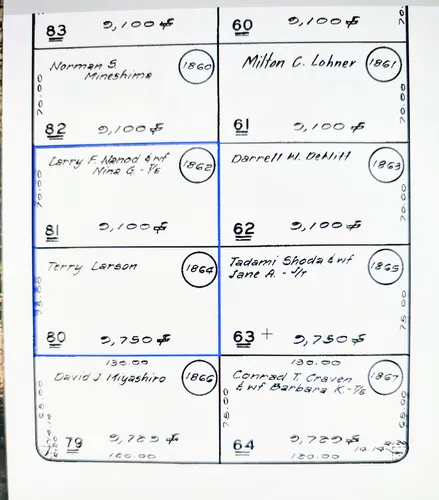 83 9,100 ⌗ 60 9,100 ⌗
70.
Norman S. 1860
Mineshima
70.00
82 9,100 ⌗
Milton C. Lohner 1861
70.00
61 9,100 ⌗
Larry F. & wf 1862
Nina G. - T/E
70.00
81 9,100 ⌗
Darrell W. DeWitt 1863
70.00
62 9,100 ⌗
Terry Larson 1864
80 9,750 ⌗
130.00
Tadami Shoda & wf 1865
Jane A. - J/T
75.00
63 + 9,750 ⌗
130.00
David J. Miyashiro 1866
79 9,729 ⌗
120.00
Conrad T. Craven 1867
& wf Barbara K. - T/E
64 9,729 ⌗
120.00